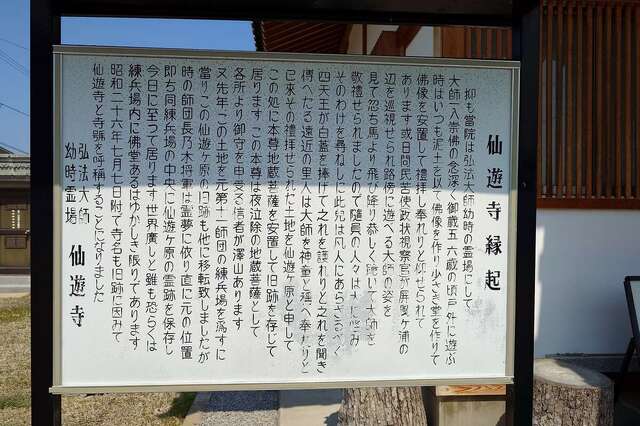 仙遊寺縁起
抑も當院は弘法大師幼時の霊場にして
大師一入崇佛の念深く御歳五六歳の頃戸外に遊ぶ
時はいつも泥土を以て佛像を作り少さき堂を作りて
佛像を安置して禮拝し奉れりと仰せられて
あります或日問民苦使政状視察官が屏風ヶ浦の
辺を巡視せられ路傍に遊べる大師の姿を
見て忽ち馬より飛び降り恭しく跪いて大師を
敬禮せられましたので随員の人々は大に怪み
そのわけを尋ねしに此児は凡人にあらざるべく
四天王が白蓋を捧げて之れを護れりと之れを聞き
傳へたる遠近の里人は大師を神童と稱へ奉れりと
已來その禮拝せられた土地を仙遊ヶ原と申して
この処に本尊地蔵菩薩を安置して旧跡を存じて
居ります この本尊は夜泣除の地蔵菩薩として
各所より御守を申受る信者が澤山あります
又先年この土地を元第十一師団の練兵場を為すに
當りこの仙遊ヶ原の旧跡も他に移転致しましたが
時の師団長乃木将軍は霊夢に依り直に元の位置
即ち同練兵場の中央に仙遊ヶ原の霊跡を保存し
今日に至って居ります世界廣しと雖も恐らくは
練兵場内に佛堂あるはゆかしき限りであります
昭和二十六年七月七日附で寺名も旧跡に因みて
仙遊寺と寺号を呼稱することになりました
弘法大師
幼時霊場
仙遊寺